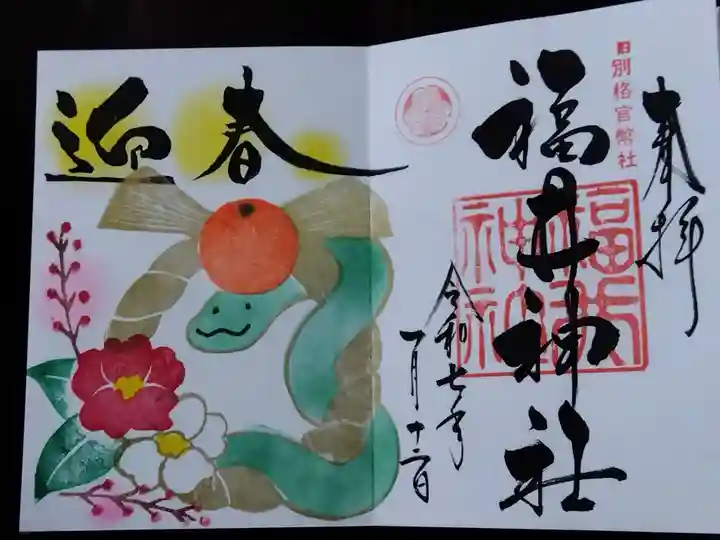 奉拝
旧別格官幣社
福井神社
福井神社
令和七年
一月十二日
迎春